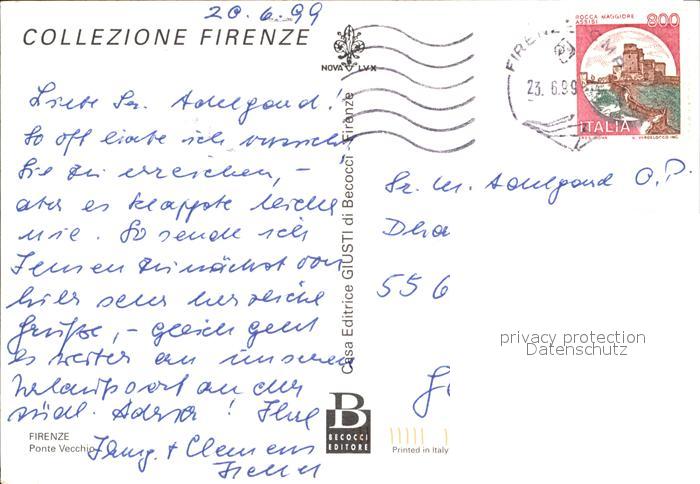 20.6.99
COLLEZIONE FIRENZE
NOVA LUX
ROCCA MAGGIORE
ASSISI
800
FIRENZE
23. 6.99
ITALIA
Liebe Sr. Adelgard!
So oft habe ich versucht
Sie zu erreichen, –
aber es klappte leider
nie. So sende ich
Ihnen zunächst von
hier sehr herzliche
Grüße, – gleich geht
es weiter an unseren
Urlaubsort an der
südl. Adria! Ihre
Casa Editrice GIUSTI di Becocci - Firenze
Sr. M. Adelgard O.P.
556
privacy protection
Datenschutz
B
BECOCCI
EDITORE
FIRENZE
Ponte Vecchio
+ Clemens
Printed in Italy